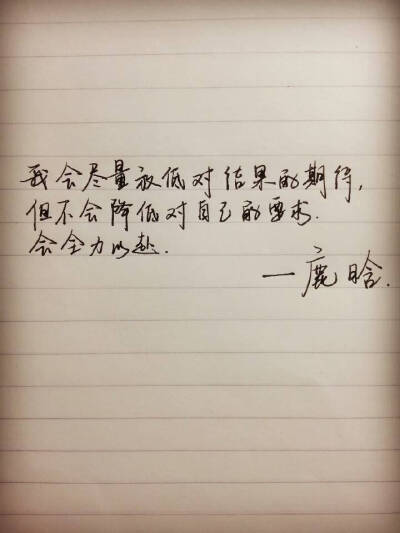 我会尽量放低对结果的期待,
但不会降低对自己的要求.
会全力以赴.
一鹿晗.